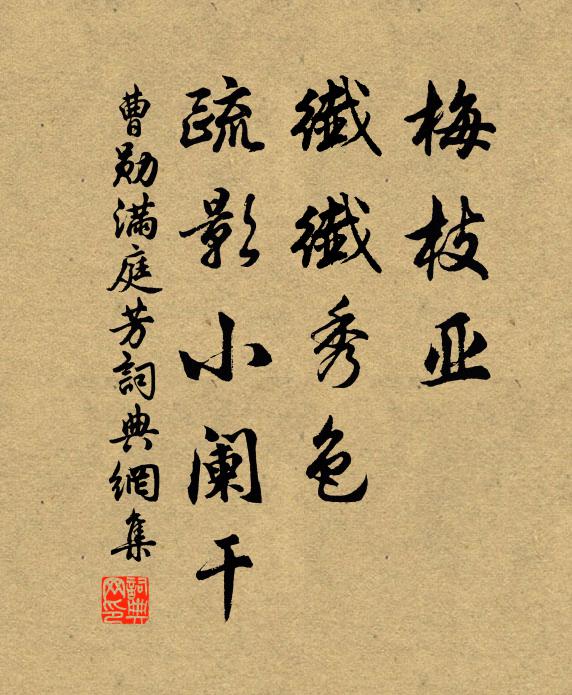 梅枝亚
纖纖秀色
疏影小阑干
曹勋满庭芳詞典網集
詞典网印